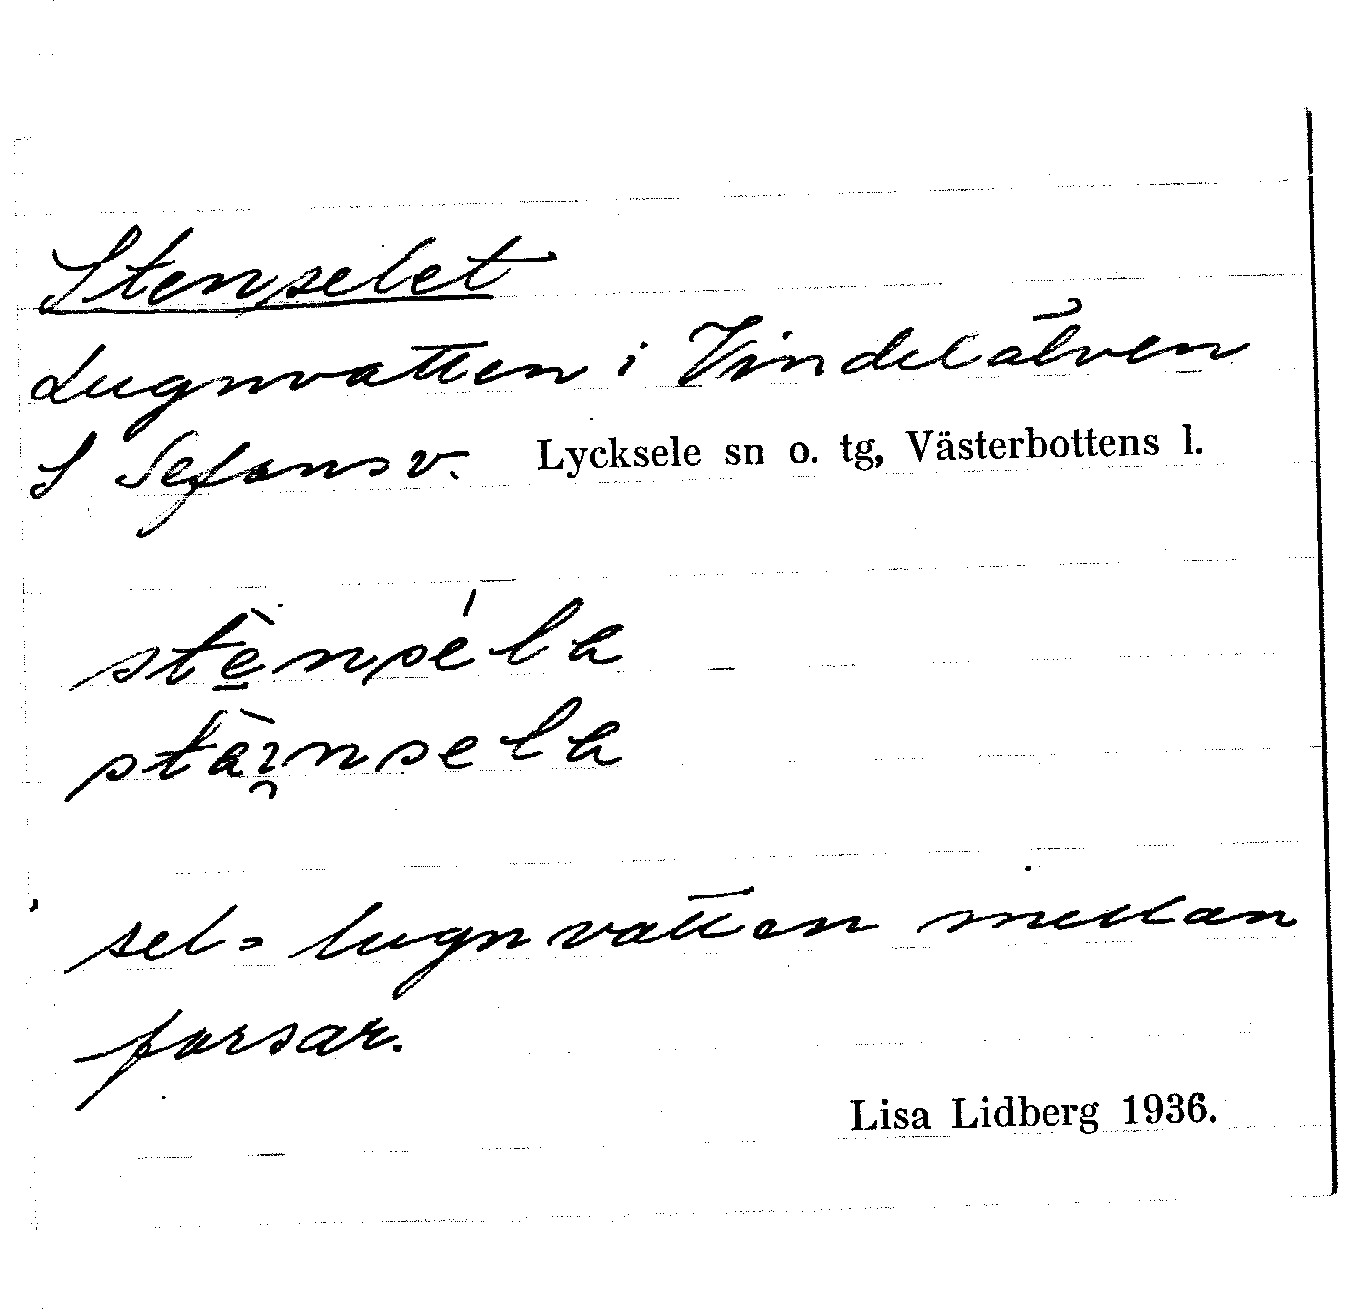 Stenselet
Lugnvatten i Vindelälven
S Sefansv. Lycksele sn o. tg, Västerbottens l.
stè̱nséla
sel = lugnvatten mellan
forsar.
Lisa Lidberg 1936.